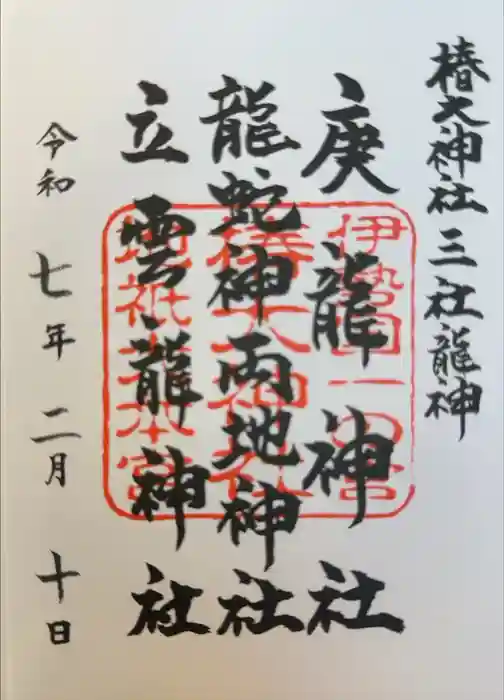 椿大神社三社龍神
庚龍神社
龍蛇神両地神社
立雲龍神社
令和七年二月十日
伊勢国一の宮
椿大神社
地祇大本宮